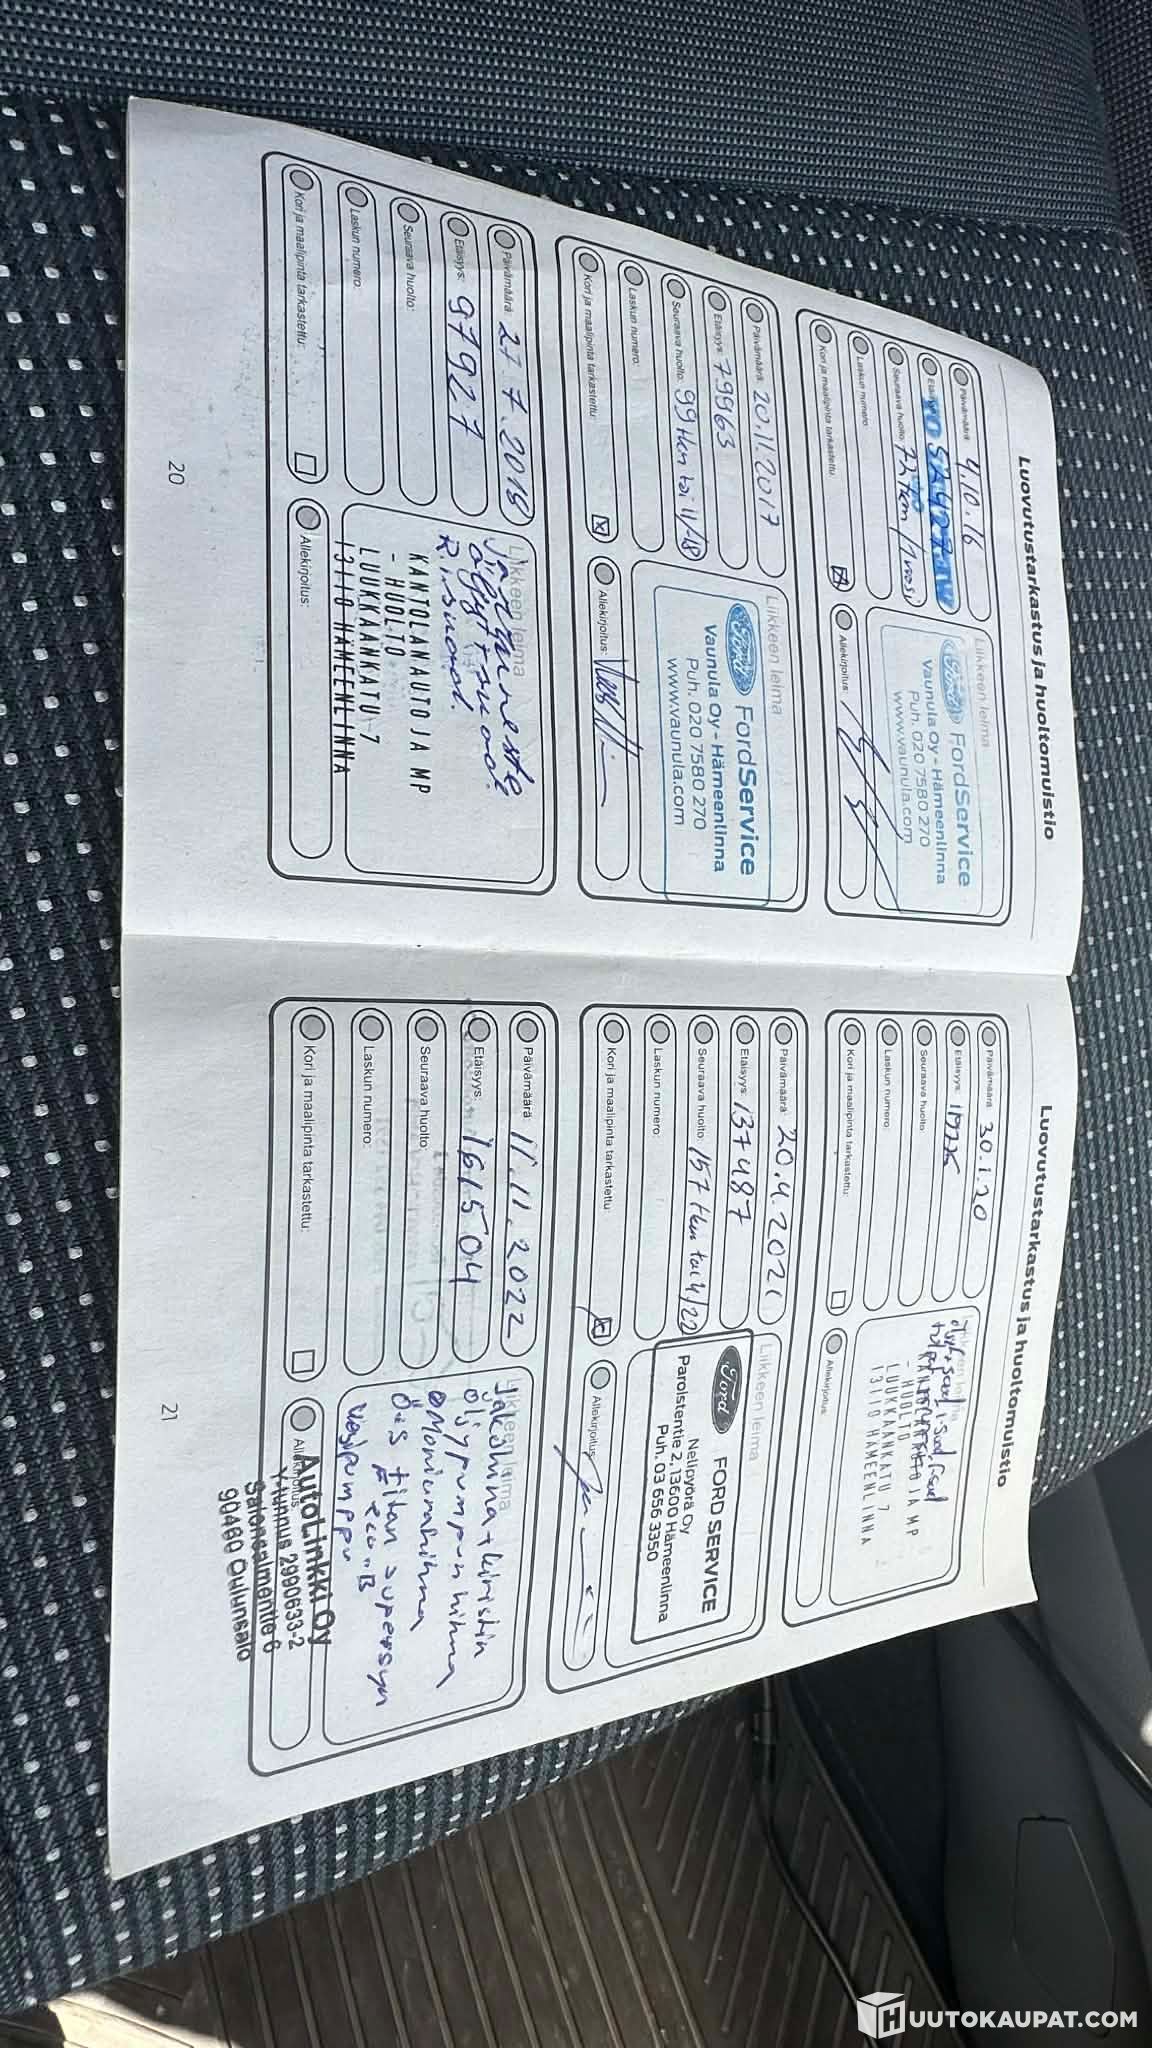 Luovutustarkastus ja huoltomuistio
Päivämäärä: 4.10.16
Etäisyys:
Seuraava huolto: 72tkm / 1vuosi
Laskun numero:
Kori ja maalipinta tarkastettu:
Liikkeen leima
Ford FordService
Vaunula Oy - Hämeenlinna
Puh. 020 7580 270
www.vaunula.com
Allekirjoitus:
Päivämäärä: 20.11.2017
Etäisyys: 79963
Seuraava huolto: 99tkm tai 11/-18
Laskun numero:
Kori ja maalipinta tarkastettu:
Liikkeen leima
Ford FordService
Vaunula Oy - Hämeenlinna
Puh. 020 7580 270
www.vaunula.com
Allekirjoitus:
Päivämäärä: 27.7.2018
Etäisyys: 97927
Seuraava huolto:
Laskun numero:
Kori ja maalipinta tarkastettu:
Liikkeen leima
Jarruneste
öljyt+suod.
R.suod.
KANTOLANAUTO JA MP
- HUOLTO
LUUKKAANKATU 7
13110 HÄMEENLINNA
Allekirjoitus:
20
Luovutustarkastus ja huoltomuistio
Päivämäärä: 30.1.20
Etäisyys:
Seuraava huolto:
Laskun numero:
Kori ja maalipinta tarkastettu:
Liikkeen leima
KANTOLANAUTO JA MP
- HUOLTO
LUUKKAANKATU 7
13110 HÄMEENLINNA
Allekirjoitus:
Päivämäärä: 20.4.2021
Etäisyys: 137487
Seuraava huolto: 157tkm tai 4/22
Laskun numero:
Kori ja maalipinta tarkastettu:
Liikkeen leima
Ford FORD SERVICE
Nelipyörä Oy
Parolstentie 2, 13600 Hämeenlinna
Puh. 03 656 3350
Allekirjoitus:
Päivämäärä: 11.11.2022
Etäisyys: 161504
Seuraava huolto:
Laskun numero:
Kori ja maalipinta tarkastettu:
Liikkeen leima
Jakohihna + kiristin
öljypumpun hihna
Moniurahihna
Öljys titan supersyn
Vesipumppu
Allekirjoitus:
AutoLinkki Oy
Y-tunnus 2990633-2
Salonselmentie 6
90460 Oulunsalo
21
HUUTOKAUPAT.COM